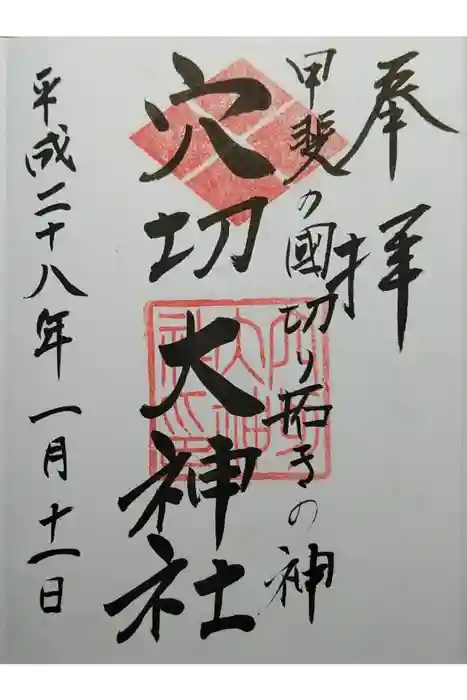 奉拝
甲斐の國切り拓きの神
穴切大神社
平成二十八年一月十一日